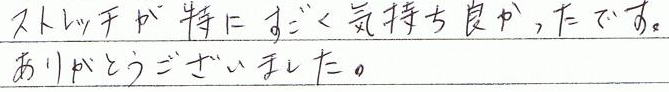 ストレッチが特にすごく気持ち良かったです。
ありがとうございました。